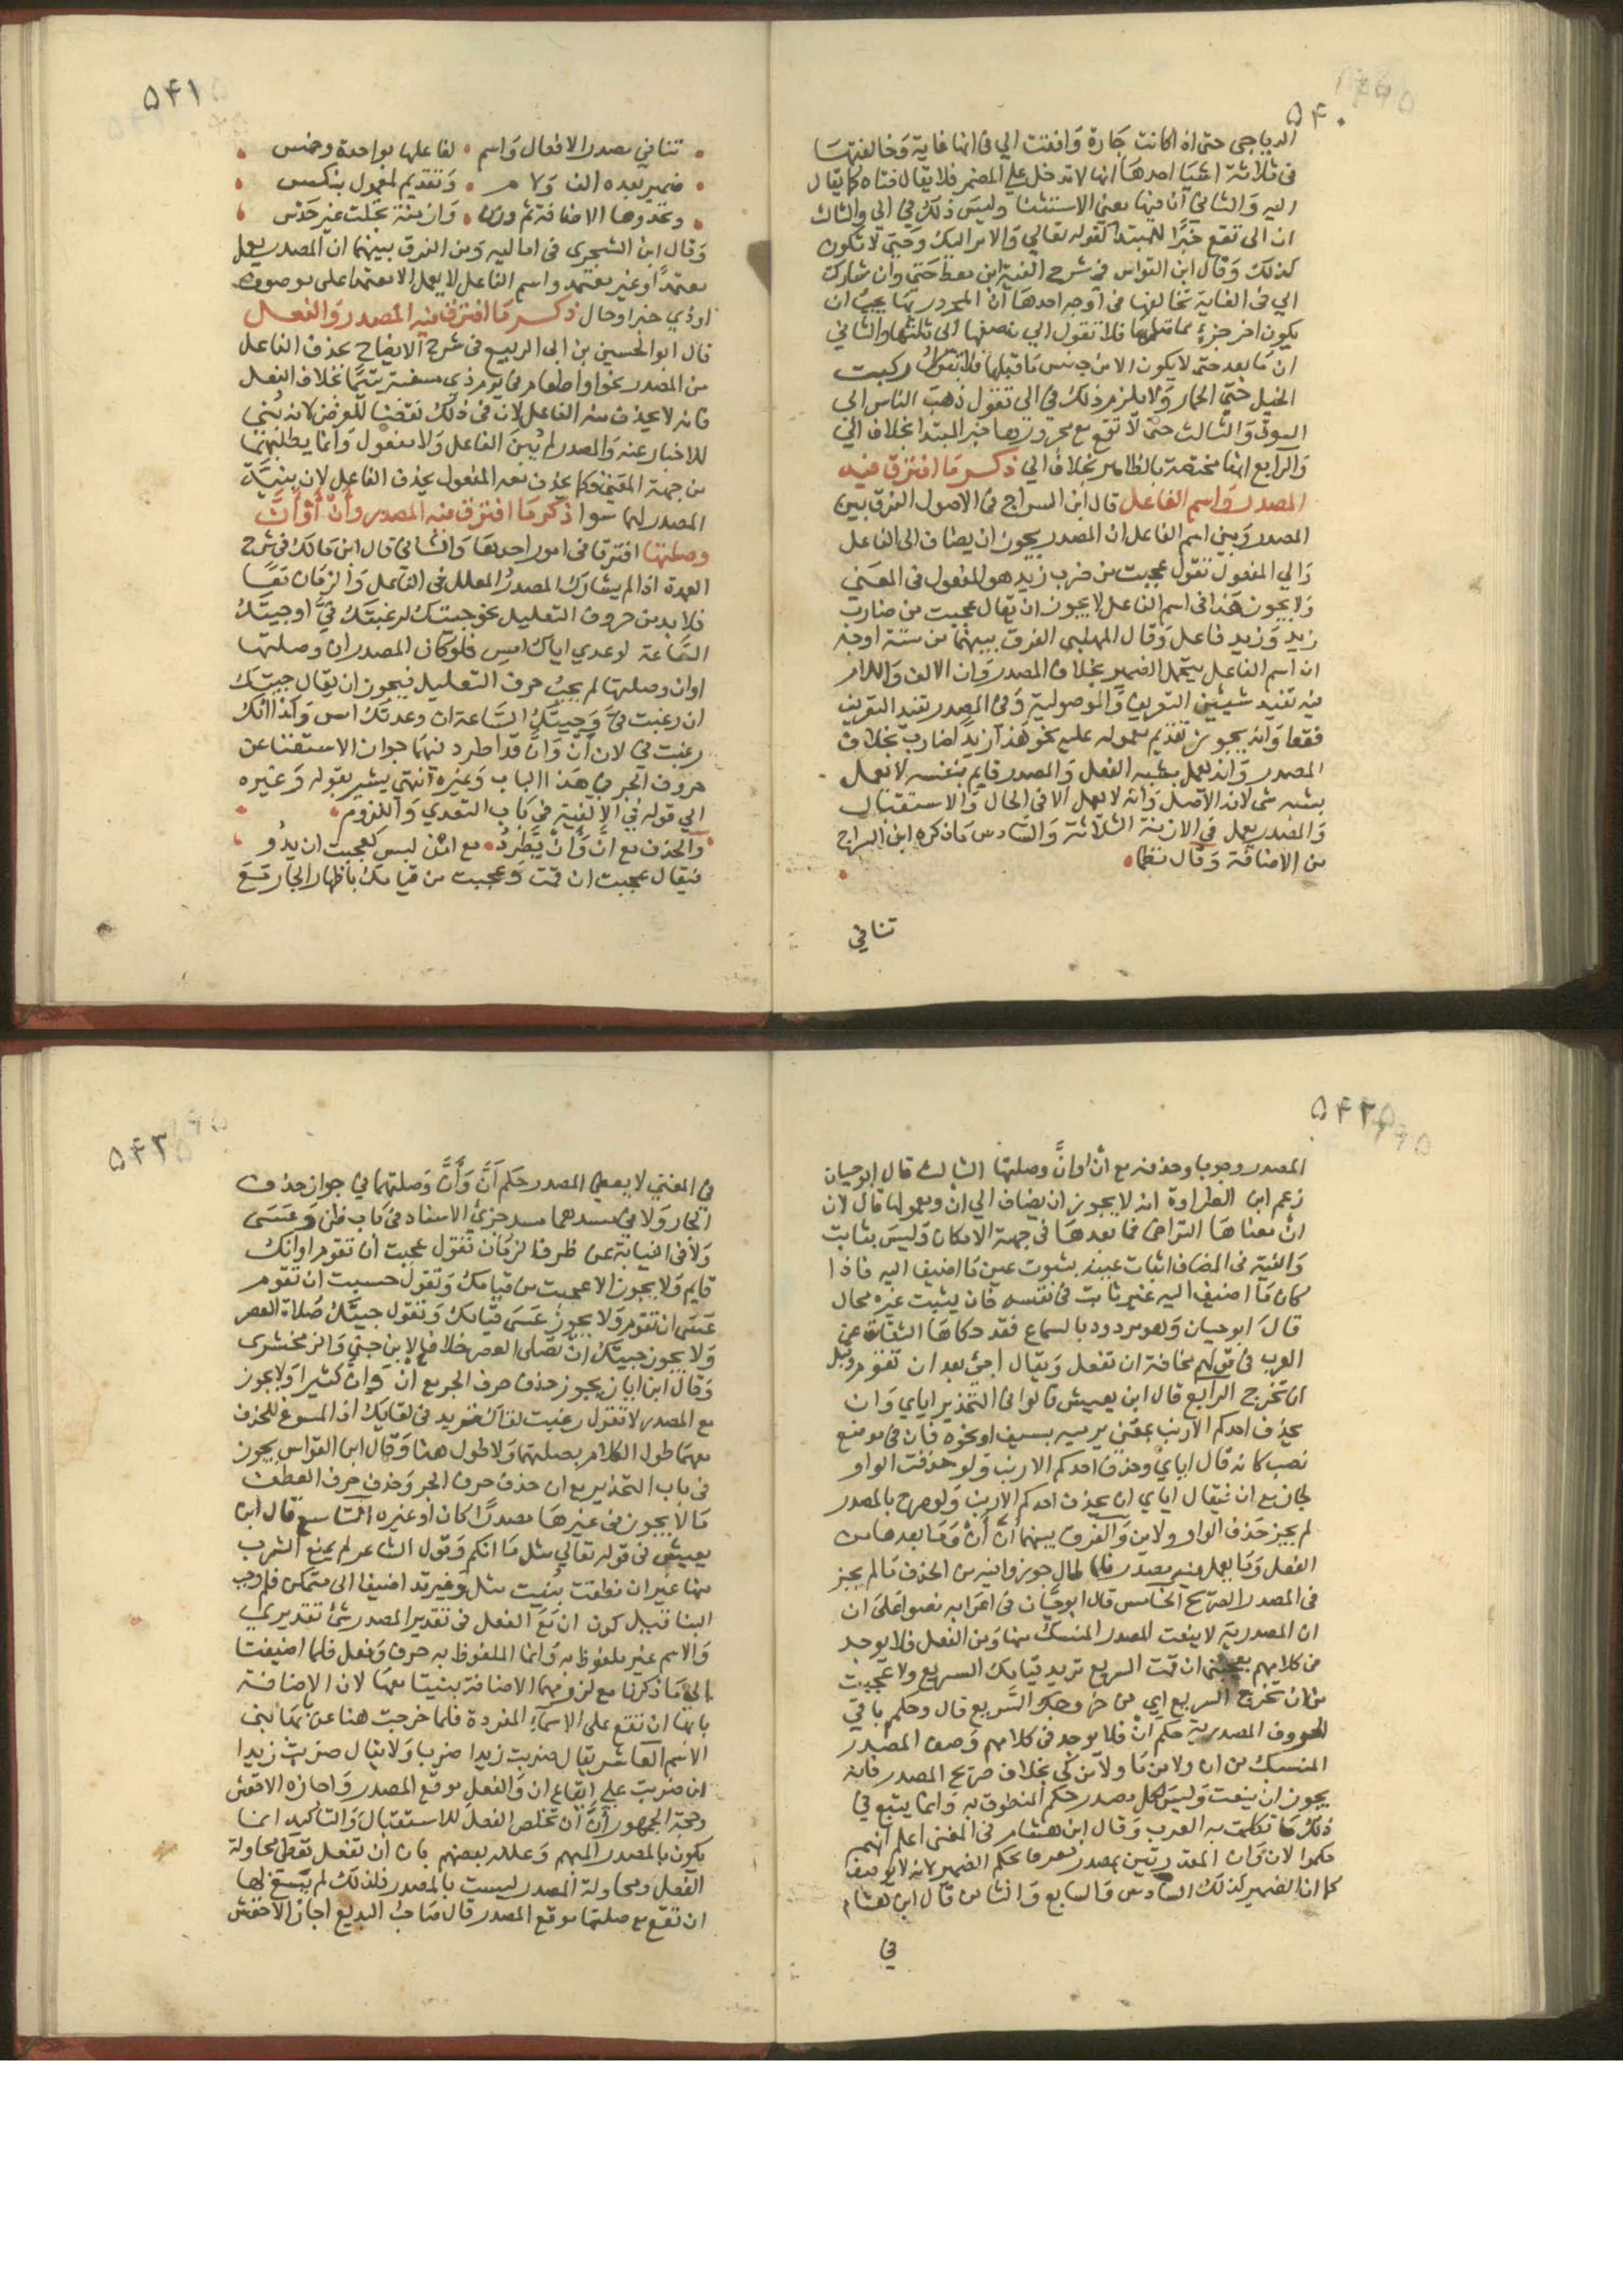 ۵۴۰
الدباجي حتى اذا كانت جارة وافقت الي في انها غاية وخالفتها
في ثلاثة اشيا احدها انها لا تدخل على المضمر فلا يقال حتاه كما يقال
اليه والثاني ان فيها معنى الاستثنا وليس ذلك في الي والثالث
ان الى تقع خبرًا للمبتدا كقوله تعالى والامر اليك وحتى لا تكون
كذلك وقال ابن القواس في شرح الفية ابن معط حتى وان شاركت
الي في الغاية تخالفها في اوجه احدها ان المجرور بها يجب ان
يكون اخر جزءٍ مما قبلها فلا تقول الي نصفها الى ثلثها والثاني
ان ما بعد حتى لا يكون الا من جنس ما قبلها فلا تقول ركبت
الخيل حتى الحمار ولا يلزم ذلك في الى تقول ذهب الناس الى
السوق والثالث حتى لا تقع مع مجرورها خبر المبتدا بخلاف الى
والرابع انها مختصة بالظاهر بخلاف الي ذكر ما افترق فيه
المصدر واسم الفاعل قال ابن السراج في الاصول الفرق بين
المصدر وبين اسم الفاعل ان المصدر يجوز ان يضاف الى الفاعل
والي المفعول تقول عجبت من ضرب زيد هو المفعول في المعنى
ولا يجوز هذا في اسم الفاعل لا يجوز ان يقال عجبت من ضارب
زيد وزيد فاعل وقال المهلبي الفرق بينهما من ستة اوجه
ان اسم الفاعل يتحمل الضمير بخلاف المصدر وان الالف واللام
فيه تفيد شيئين التعريف والموصولية وفي المصدر تفيد التعريف
فقط وانه يجوز تقديم معموله عليه نحو هذا زيدًا ضارب بخلاف
المصدر وانه يعمل بشبه الفعل والمصدر قايم بنفسه لا يعمل
بشبه شى لانه الاصل وانه لا يعمل الا في الحال والاستقبال
والمصدر يعمل في الازمنة الثلاثة والسادس ما ذكره ابن السراج
من الاضافة وقال نظما
تنافي
۵۴۱
تنافي مصدر الافعال واسم لفاعلها بواحدة وخمس
ضمير بعده الف ولام وتقديم لمعمول بنكس
وعدوها الاضافة ثم وزن وازمنة تجلت غير حدس
وقال ابن الشجرى في اماليه ومن الفرق بينهما ان المصدر يعمل
معتمدًا وغير معتمد واسم الفاعل لا يعمل الا معتمدا على موصوف
اوذي خبر او حال ذكر ما افترق فيه المصدر والفعل
قال ابو الحسين بن ابى الربيع فى شرح الايضاح يحذف الفاعل
من المصدر نحو او اطعام في يوم ذي مسغبة يتيما بخلاف الفعل
فانه لا يحذف منه الفاعل لان فى ذلك نقضا للغرض لانه بُني
للاخبار عنه والمصدر لم يُبن الفاعل ولا مفعول وانما يطلبهما
من جهة المعنى فكما يحذف معه المفعول يحذف الفاعل لان بنية
المصدر لهما سوا ذكر ما افترق فيه المصدر وأنْ أوْ أنَّ
وصلتها افترقا في امور احدها والثاني قال ابن مالك فى شرح
العمدة اذا لم يشارك المصدرُ المعلل فى الفاعل والزمان معًا
فلا بد من حروف التعليل نحو جيتك لرغبتك فيَّ او جيتك
الساعة لوعدي اياك امس فلو كان المصدر ان وصلتها
او ان وصلتها لم يجبْ حرف التعليل فيجوز ان يقال جيتك
ان رغبت فيَّ وجيتك الساعة ان وعدتك امس وكذا انك
رغبت في لان أنْ وأنَّ قد اطرد فيهما جواز الاستغنا عن
حروف الجر في هذا الباب وغيره انتهى يشير بقوله وغيره
الي قوله في الالفية في باب التعدي واللزوم
والحذف مع انَّ وَأنْ يطّرِدُ مع امْن لبس كعجبت ان يدُو
فيقال عجبت ان قمت وعجبت من قيامك باظهار الجار مَعَ
۵۴۲
المصدر وجوبا وحذفه مع أنْ او انَّ وصلتها الثالث قال ابو حيان
زعم ابن الطراوة انه لا يجوز ان يضاف الي ان ومعمولها قال لان
انْ معناها التراخى فما بعدها في جهة الامكان وليس بثابت
والنية في المضاف اثبات عينه بثبوت عين ما اضيف اليه فاذا
كان ما اضيف اليه غير ثابت في نفسه فان يثبت غيره محال
قال ابو حيان وهو مردود بالسماع فقد حكاها الثقات عن
العرب في قولهم مخافة ان تفعل ويقال اجئ بعد ان تقوم وقبل
ان تخرج الرابع قال ابن يعيش قالوا في التحذير اياي وان
يحذف احدكم الارنب يعنى يرميه بسيف او نحوه فان في موضع
نصب كانه قال اياي وحذف احدكم الارنب ولو حذفت الواو
لجاز مع ان فيقال اياي ان يحذف احدكم الارنب ولو صرح بالمصدر
لم يجز حذف الواو ولا من والفرق بينهما أنَّ أنْ وما بعدها من
الفعل وما يعمل فيه مصدر فلما طال جوزوا فيه من الحذف ما لم يجز
فى المصدر الصريح الخامس قال ابو حيان فى اعرابه نصوا على ان
ان المصدرية لا ينعت المصدر المنسبك منها ومن الفعل فلا يوجد
من كلامهم يعجبنى ان قمت السريع تريد قيامك السريع ولا عجبت
من ان تخرج السريع اي من خروجك السريع قال وحكم باقي
الحروف المصدرية حكم انْ فلا يوجد في كلامهم وصف المصدر
المنسبك من ان ولا من ما ولا من كى بخلاف صريح المصدر فانه
يجوز ان ينعت وليس لكل مصدر حكم المنطوق به وانما يتبع في
ذلك ما تكلمت به العرب وقال ابن هشام في المغنى اعلم انهم
حكموا لان وان المقدرتين بمصدر معرف بحكم الضمير لانه لا يوصف
كما ان الضمير كذلك السادس والسابع والثامن قال ابن هشام
في
۵۴۳
في المغني لا يعطى المصدر حكم أنَّ وأنْ وصلتهما في جواز حذف
الجار ولا في سدهما مسد جزئ الاسناد في باب ظن وعسى
ولا في النيابة عن ظرف الزمان تقول عجبت ان تقوم او انك
قايم ولا يجوز الا عجبت من قيامك وتقول حسبت ان تقوم
عسى ان تقوم ولا يجوز عسى قيامك وتقول جيتك صلاة العصر
ولا يجوز جيتك ان تصلى العصر خلافا لابن جني والزمخشرى
وقال ابن اياز يجوز حذف حرف الجر مع انْ وانَّ كثيرا ولا يجوز
مع المصدر لا تقول رغبت لقاك تريد في لقايك اذ المسوغ للحذف
معهما طول الكلام بصلتهما ولا طول هنا وقال ابن القواس يجوز
في باب التحذير مع ان حذف حرف الجر وحذف حرف العطف
ما لا يجوز في غيرها مصدرًا كان او غيره التاسع قال ابن
يعيش في قوله تعالي مثل ما انكم وقول الشاعر لم يمنع الشرب
منها غير ان نطقت بنيت مثل وغير قد اضيفا الى متمكن فلم وجب
البنا قيل كون ان مع الفعل في تقدير المصدر شئ تقديري
والاسم غير ملفوظ به وانما الملفوظ به حرف وفعل فلما اضيفت
الي ما ذكرنا مع لزومهما الاضافة بنيتا معها لان الاضافة
بابها ان تقع على الاسماء المفردة فلما خرجت هنا عن بابها بنى
الاسم العاشر يقال ضربت زيدا ضربا ولا يقال ضربت زيدا
ان ضربت علي ايقاع ان والفعل موقع المصدر واجازه الاخفش
وحجة الجمهور أنَّ أنْ تخلص الفعل للاستقبال والتاكيد انما
يكون بالمصدر المبهم وعلله بعضهم بان أن تفعل يعطى محاولة
الفعل ومحاولة المصدر ليست بالمصدر فلذلك لم يسغ لها
ان تقع مع صلتها موقع المصدر قال صاحب البديع اجاز الاخفش